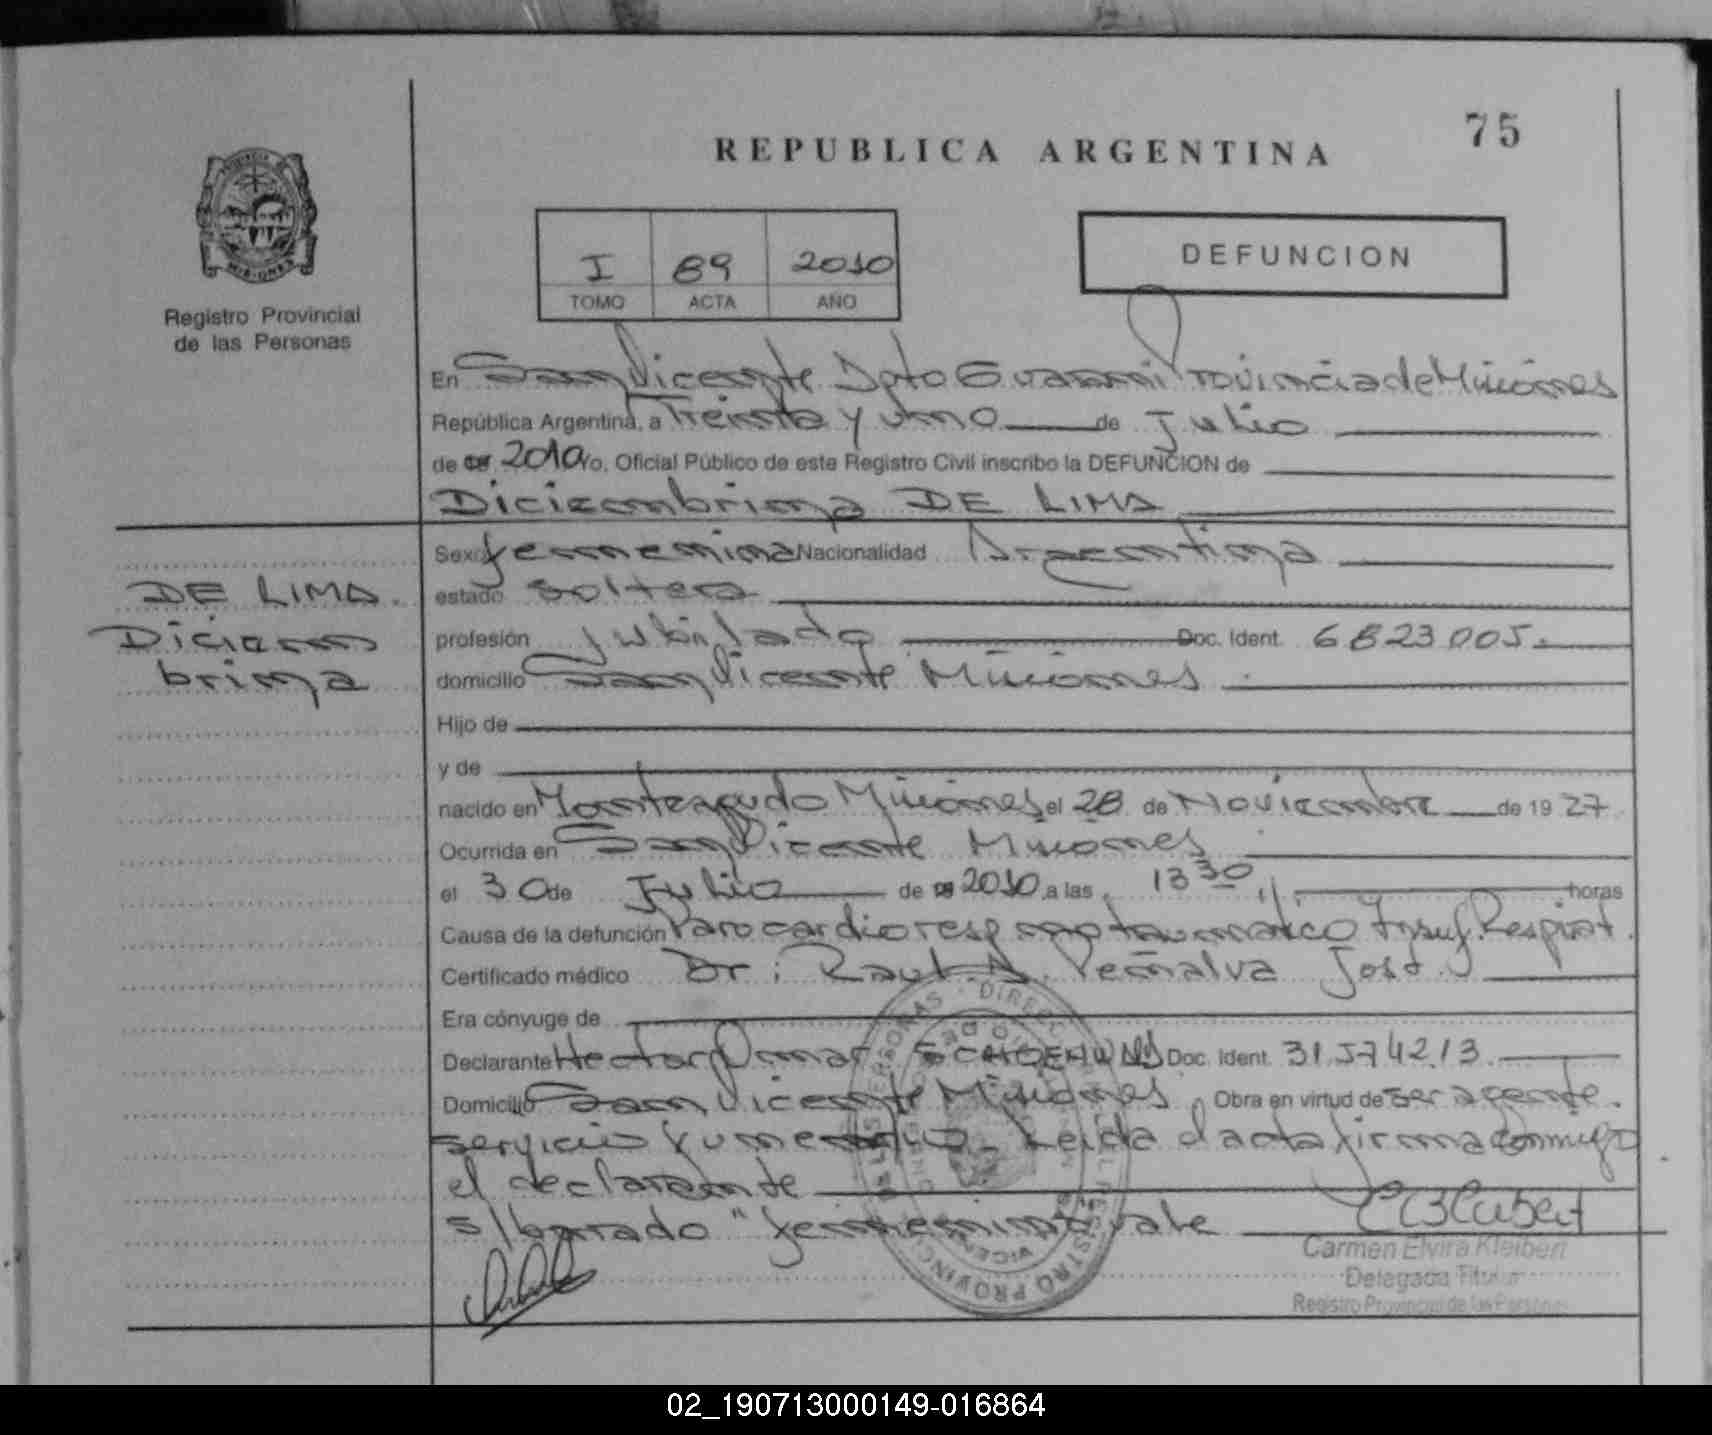 75
REPUBLICA ARGENTINA
DEFUNCION
I 89 2010
TOMO ACTA AÑO
Registro Provincial
de las Personas
En San Vicente Dpto Guarani Provincia de Misiones
República Argentina, a Treinta y uno de Julio
de 2010 Yo, Oficial Público de este Registro Civil inscribo la DEFUNCION de
Diciembrina DE LIMA
DE LIMA.
Diciem
brina
Sexo femenina Nacionalidad Argentina
estado soltera
profesión jubilada Doc. Ident. 6823005.
domicilio San Vicente Misiones
Hijo de
y de
nacido en Monteagudo Misiones el 28 de Noviembre de 19 27
Ocurrida en San Vicente Misiones
el 30 de Julio de 2010 a las 13 30 horas
Causa de la defunción Paro cardioresp no traumatico Insuf. Respirat.
Certificado médico Dr: Raul A. Peñalva José
Era cónyuge de
Declarante Hector Omar Doc. Ident. 31.574213.
Domicilio San Vicente Misiones, Obra en virtud de ser agente
servicio funerario. Leida el acta firma conmigo
el declarante
s/borrado "femenina vale
Carmen Elvira Kleibert
Delegada Titular
Registro Provincial de las Personas
02_190713000149-016864